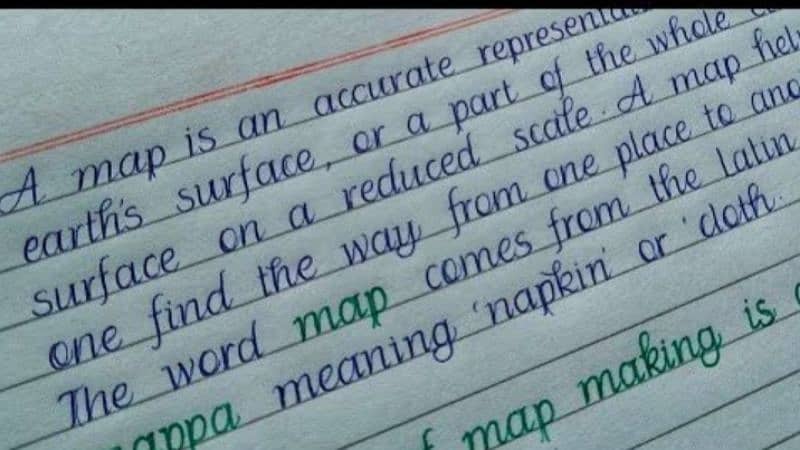 A map is an accurate
earth's surface, or a part of the whole
surface on a reduced scale. A map
one find the way from one place to
The word map comes from the latin
meaning 'napkin' or 'cloth.
map making is